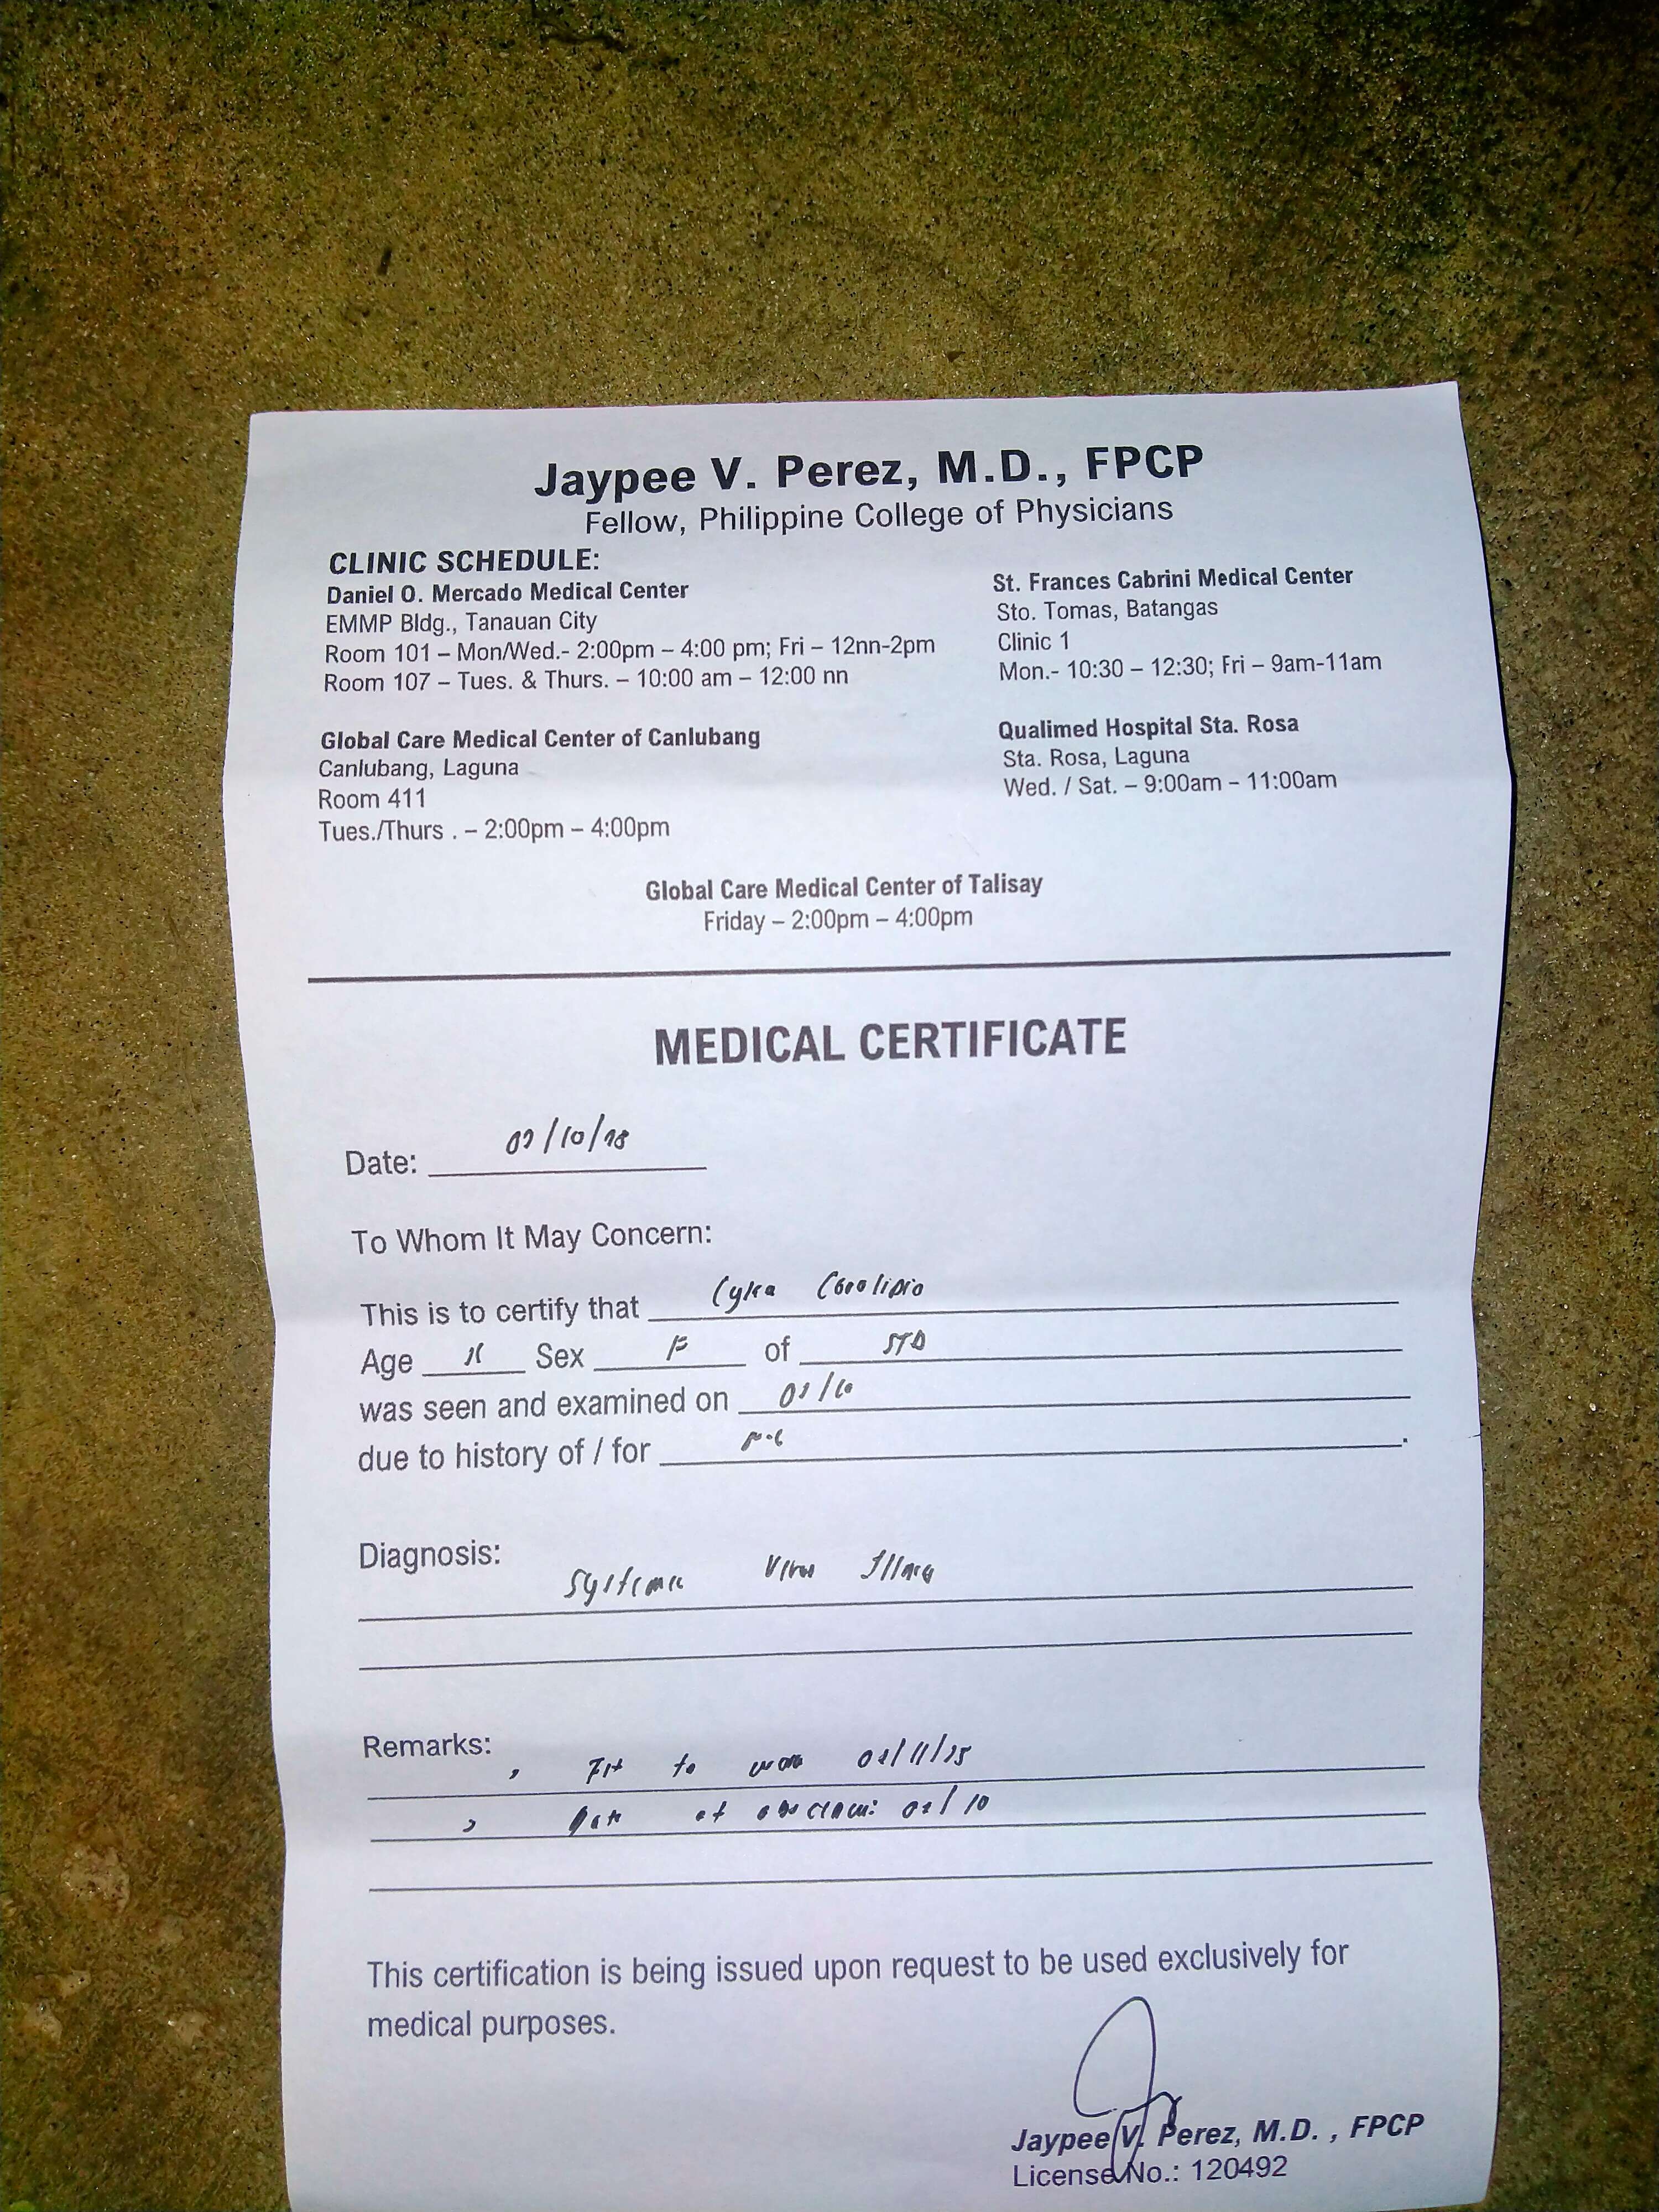 Jaypee V. Perez, M.D., FPCP
Fellow, Philippine College of Physicians
CLINIC SCHEDULE:
Daniel O. Mercado Medical Center
EMMP Bldg., Tanauan City
Room 101 – Mon/Wed.- 2:00pm – 4:00 pm; Fri – 12nn-2pm
Room 107 – Tues. & Thurs. – 10:00 am – 12:00 nn
St. Frances Cabrini Medical Center
Sto. Tomas, Batangas
Clinic 1
Mon.- 10:30 – 12:30; Fri – 9am-11am
Global Care Medical Center of Canlubang
Canlubang, Laguna
Room 411
Tues./Thurs . – 2:00pm – 4:00pm
Qualimed Hospital Sta. Rosa
Sta. Rosa, Laguna
Wed. / Sat. – 9:00am – 11:00am
Global Care Medical Center of Talisay
Friday – 2:00pm – 4:00pm
MEDICAL CERTIFICATE
Date:
To Whom It May Concern:
This is to certify that
Age Sex F of
was seen and examined on
due to history of / for
Diagnosis:
Systemic Viral Illness
Remarks:
Fit to work
Date of absence:
This certification is being issued upon request to be used exclusively for
medical purposes.
Jaypee V. Perez, M.D. , FPCP
License No.: 120492